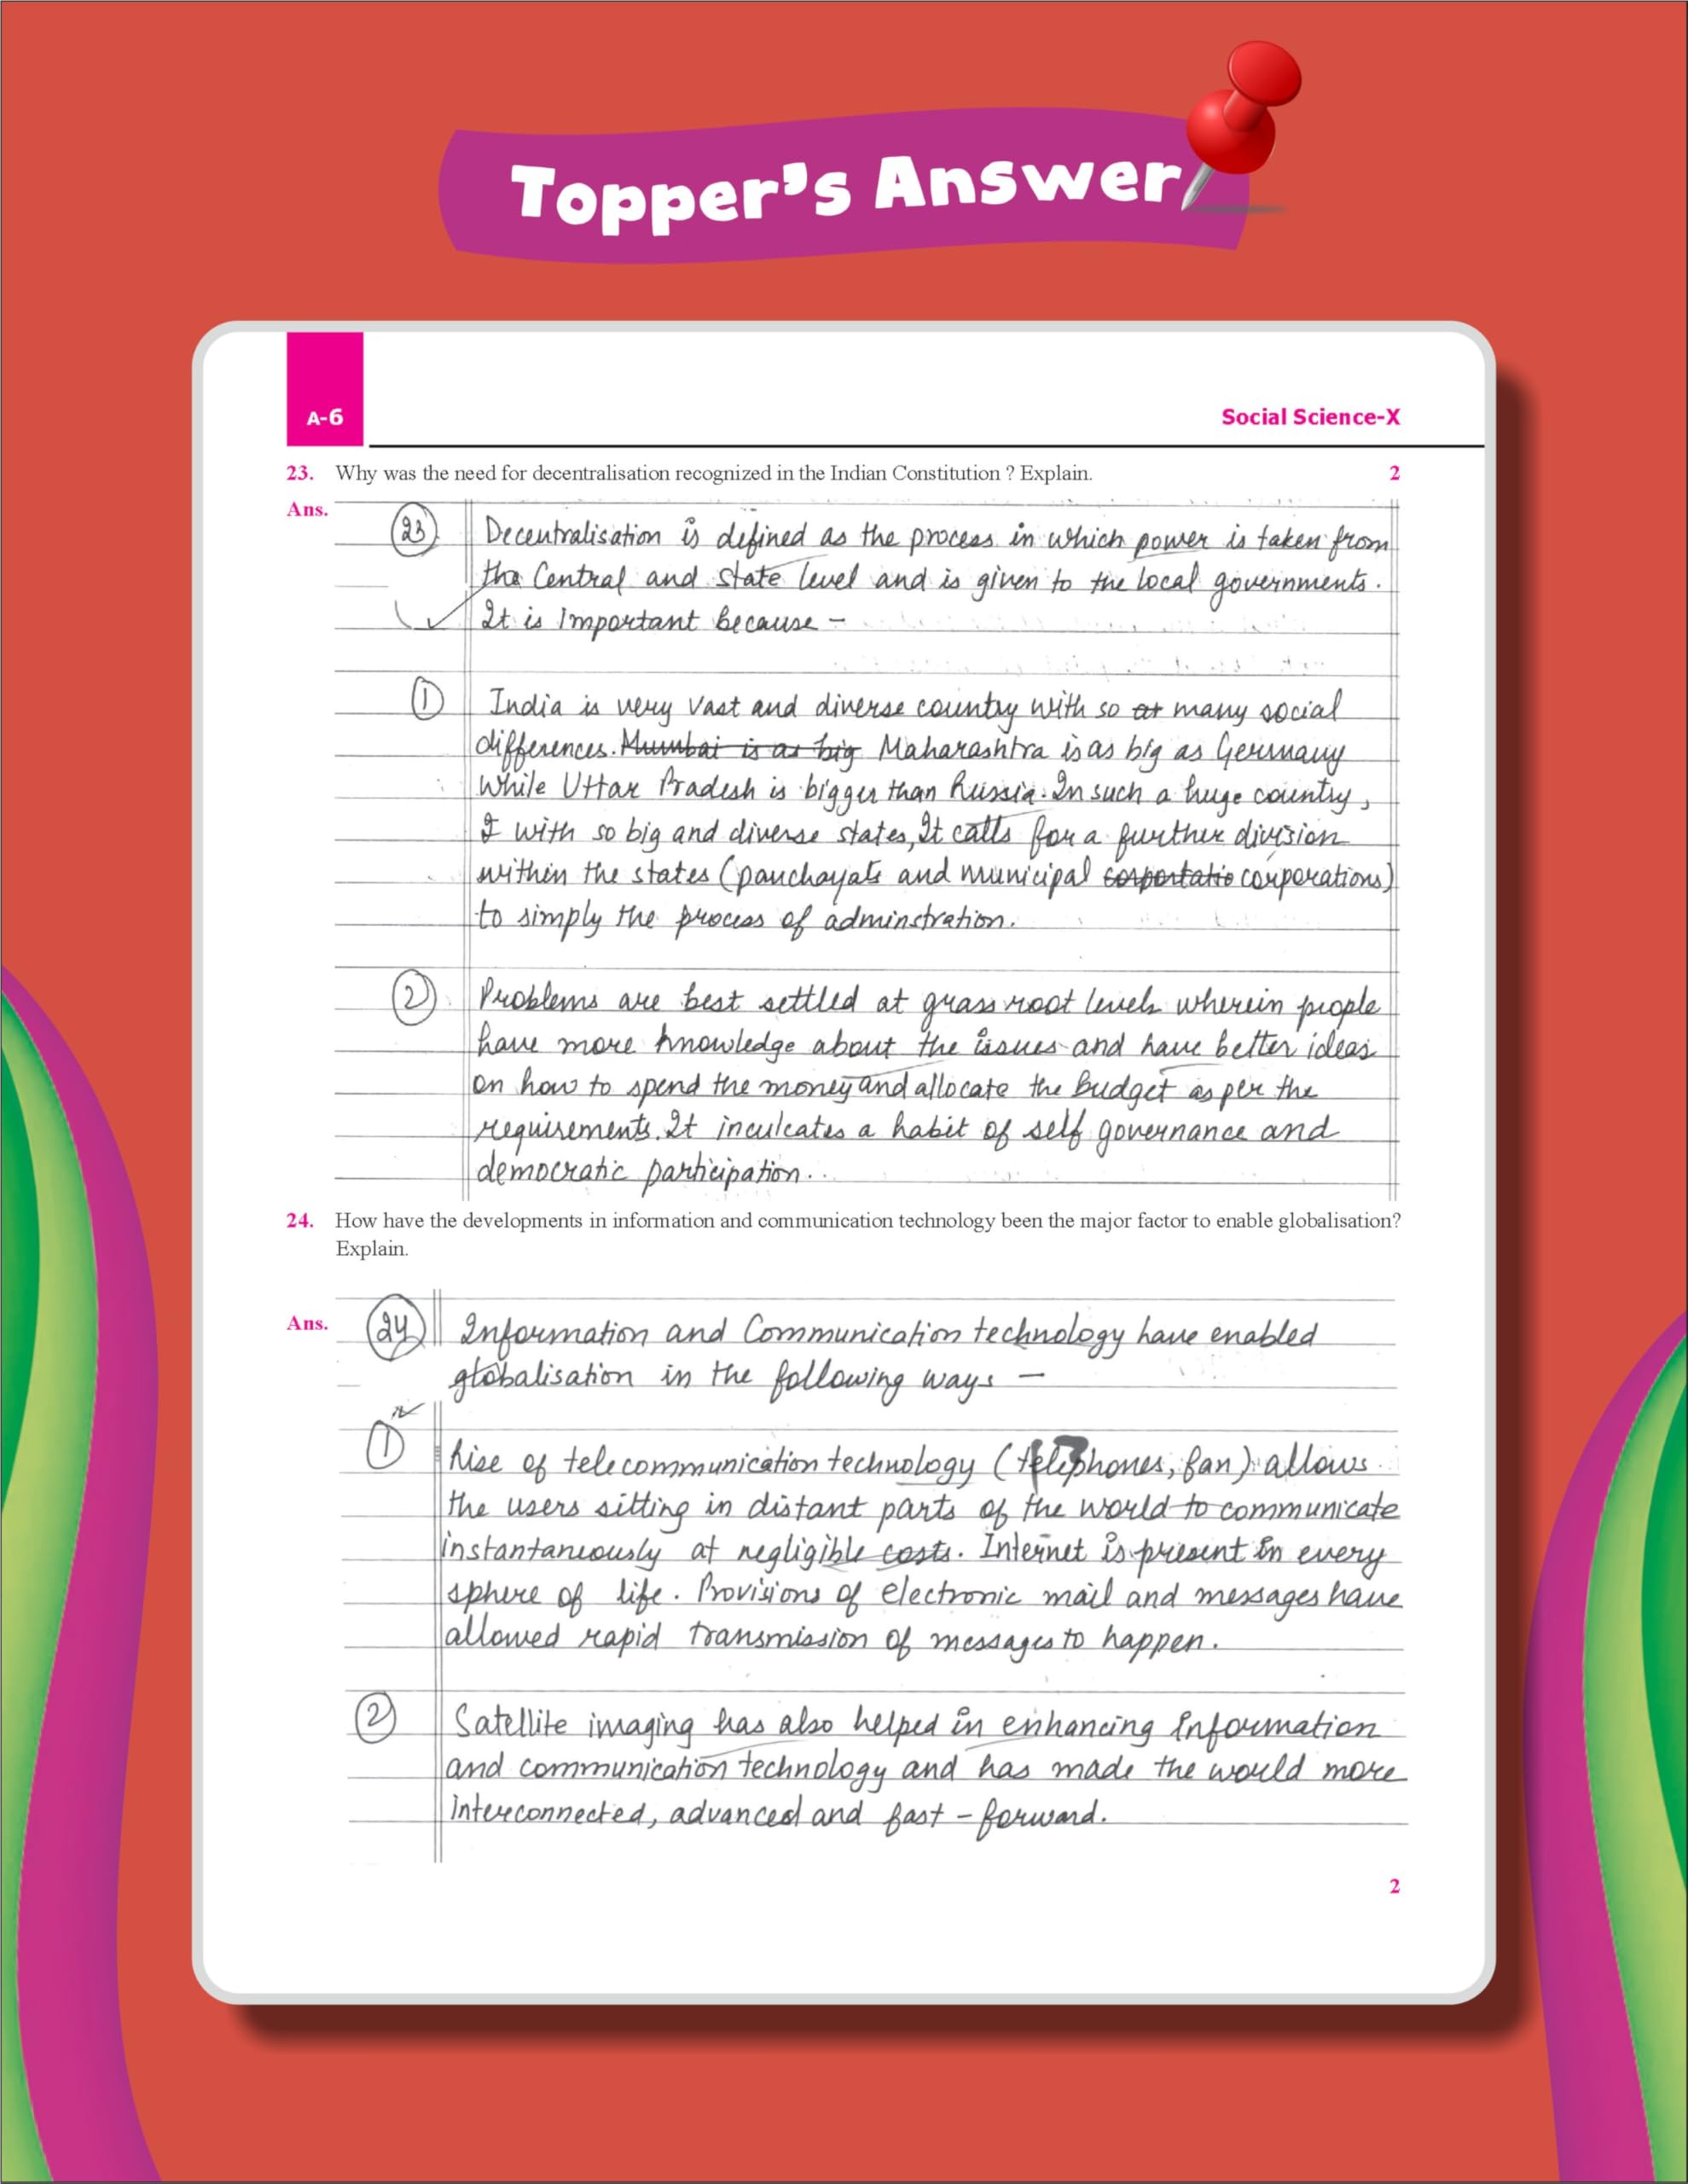 Topper's Answer
A-6
Social Science-X
23. Why was the need for decentralisation recognized in the Indian Constitution ? Explain. 2
Ans.
23 Decentralisation is defined as the process in which power is taken from
the Central and state level and is given to the local governments.
It is Important because -
1 India is very vast and diverse country with so at many social
differences. Mumbai is as big Maharashtra is as big as Germany
while Uttar Pradesh is bigger than Russia. In such a huge country,
I with so big and diverse states, It calls for a further division
within the states (panchayats and municipal corportatio corporations)
to simply the process of adminstration.
2 Problems are best settled at grass root levels wherein people
have more knowledge about the issues and have better ideas
on how to spend the money and allocate the Budget as per the
requirements. It inculcates a habit of self governance and
democratic participation..
24. How have the developments in information and communication technology been the major factor to enable globalisation?
Explain.
Ans.
24 Information and Communication technology have enabled
globalisation in the following ways -
1 Rise of telecommunication technology (telephones, fan) allows
the users sitting in distant parts of the world to communicate
instantaneously at negligible costs. Internet is present in every
sphere of life. Provisions of electronic mail and messages have
allowed rapid transmission of messages to happen.
2 Satellite imaging has also helped in enhancing Information
and communication technology and has made the would more
interconnected, advanced and fast - forward.
2